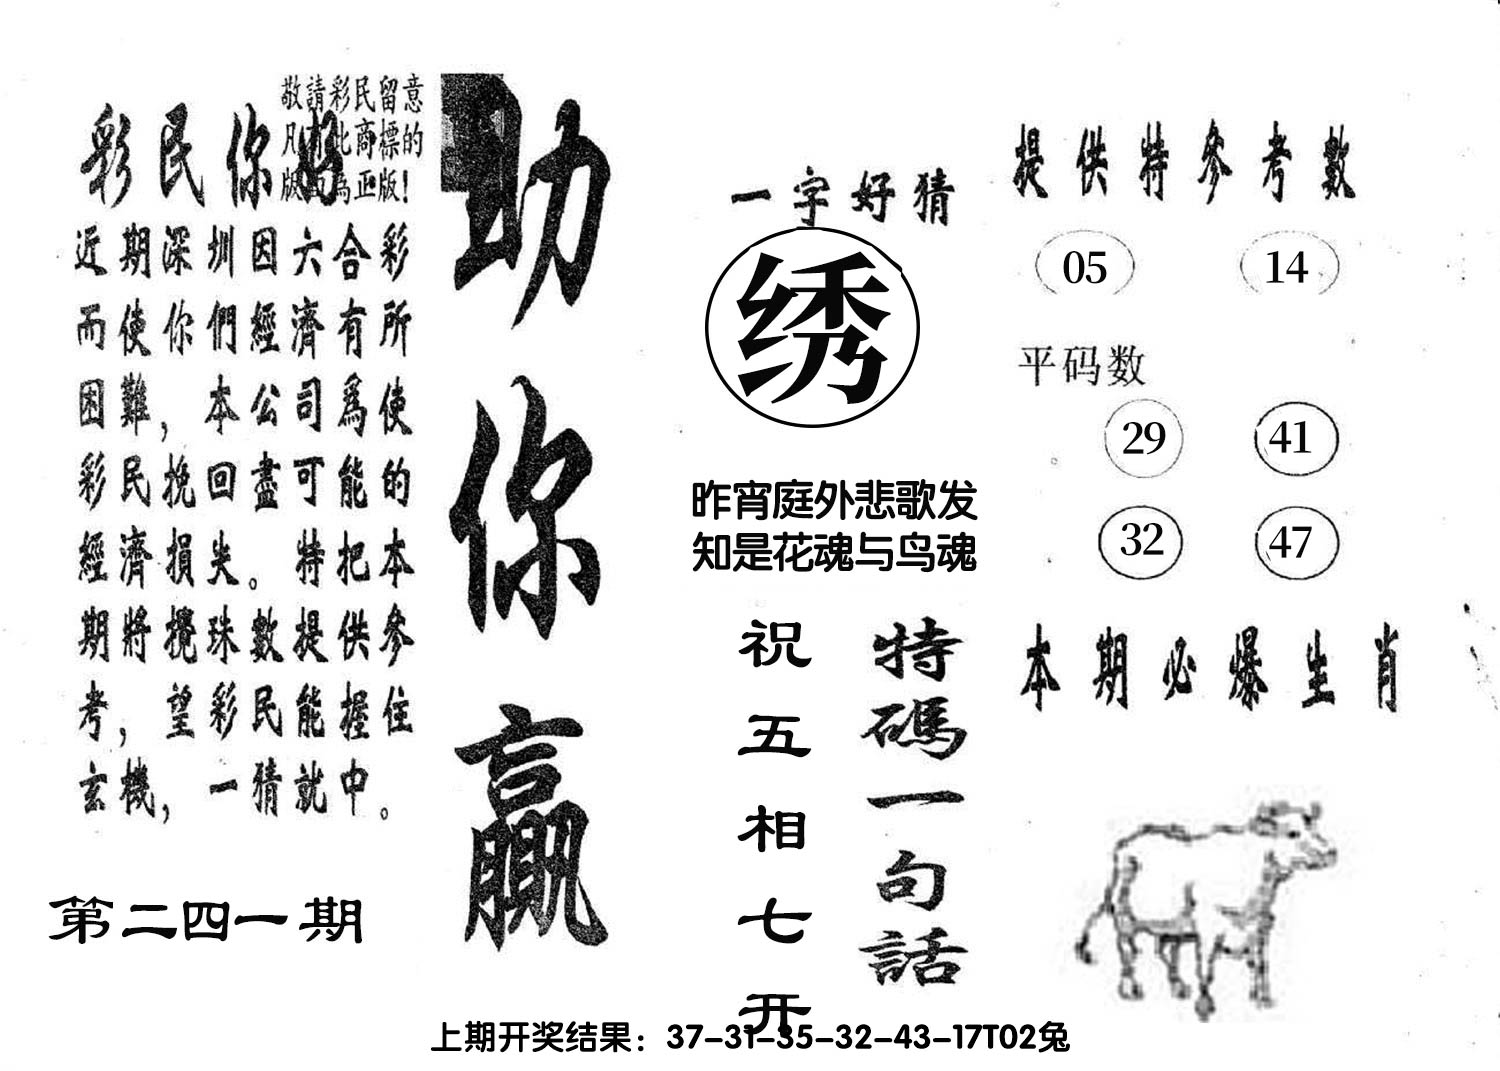 敬請彩民留意
凡有此商標的
版面為正版!
彩民你好
近期深圳因六合彩
而使你們經濟有所
困難,本公司爲使
彩民挽回盡可能的
經濟損失。特把本
期將攪珠數提供參
考,望彩民能握住
玄機,一猜就中。
第二四一期
助你贏
一字好猜
绣
昨宵庭外悲歌发
知是花魂与鸟魂
特碼一句話
祝五相七开
提供特參考數
05 14
平码数
29 41
32 47
本期必爆生肖
上期开奖结果：37-31-35-32-43-17T02兔